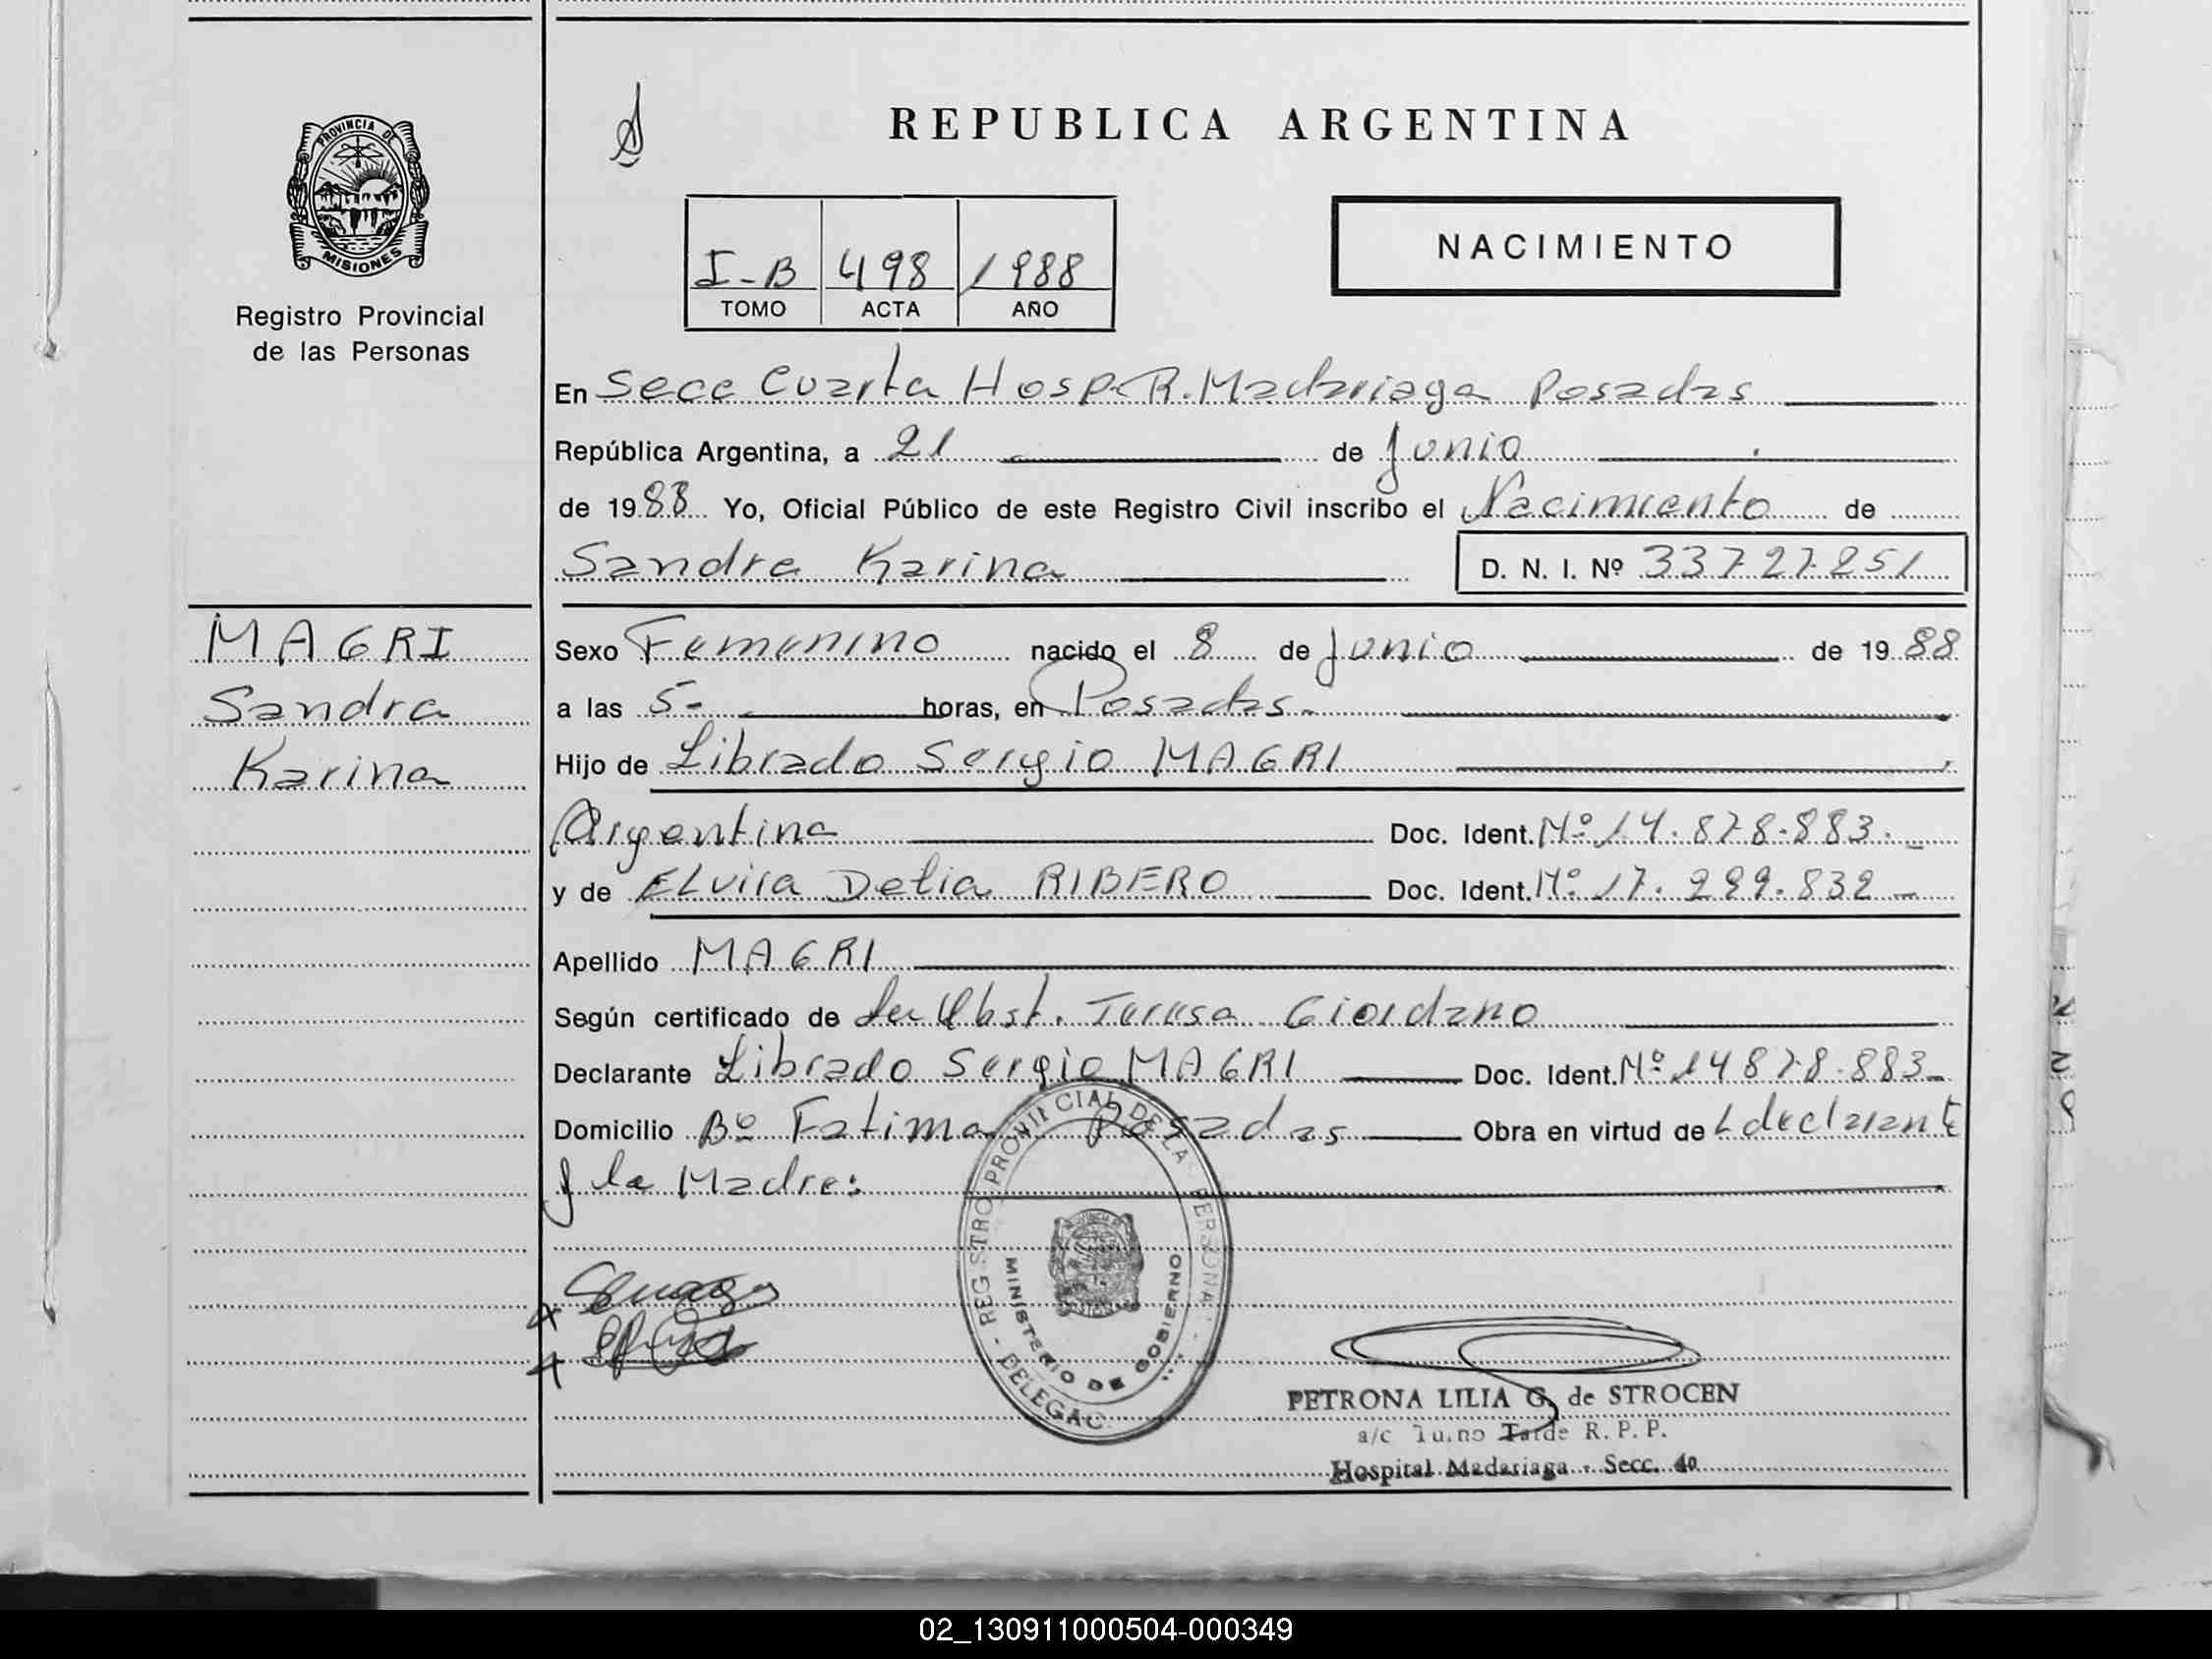 PROVINCIA DE
MISIONES
Registro Provincial
de las Personas
REPUBLICA ARGENTINA
I-B 498 1988
TOMO ACTA AÑO
NACIMIENTO
En Secc Cuarta Hosp. R. Madariaga Posadas
República Argentina, a 21 de Junio
de 1988 Yo, Oficial Público de este Registro Civil inscribo el Nacimiento de
Sandra Karina D. N. I. Nº 33727251
MAGRI
Sandra
Karina
Sexo Femenino nacido el 8 de Junio de 1988
a las 5- horas, en Posadas-
Hijo de Librado Sergio MAGRI
Argentina Doc. Ident. Nº 14.878.883.-
y de ELvira Delia RIBERO Doc. Ident. Nº 17.299.832-
Apellido MAGRI
Según certificado de la Obst. Teresa Giordano
Declarante Librado Sergio MAGRI Doc. Ident. Nº 14878.883-
Domicilio Bº Fatima Posadas Obra en virtud de L declarante
y la Madre:
REGISTRO PROVINCIAL DE LAS PERSONAS - DELEGAC.
MINISTERIO DE GOBIERNO
PETRONA LILIA G. de STROCEN
a/c Turno Tarde R. P. P.
Hospital Madariaga - Secc. 4a
02_130911000504-000349